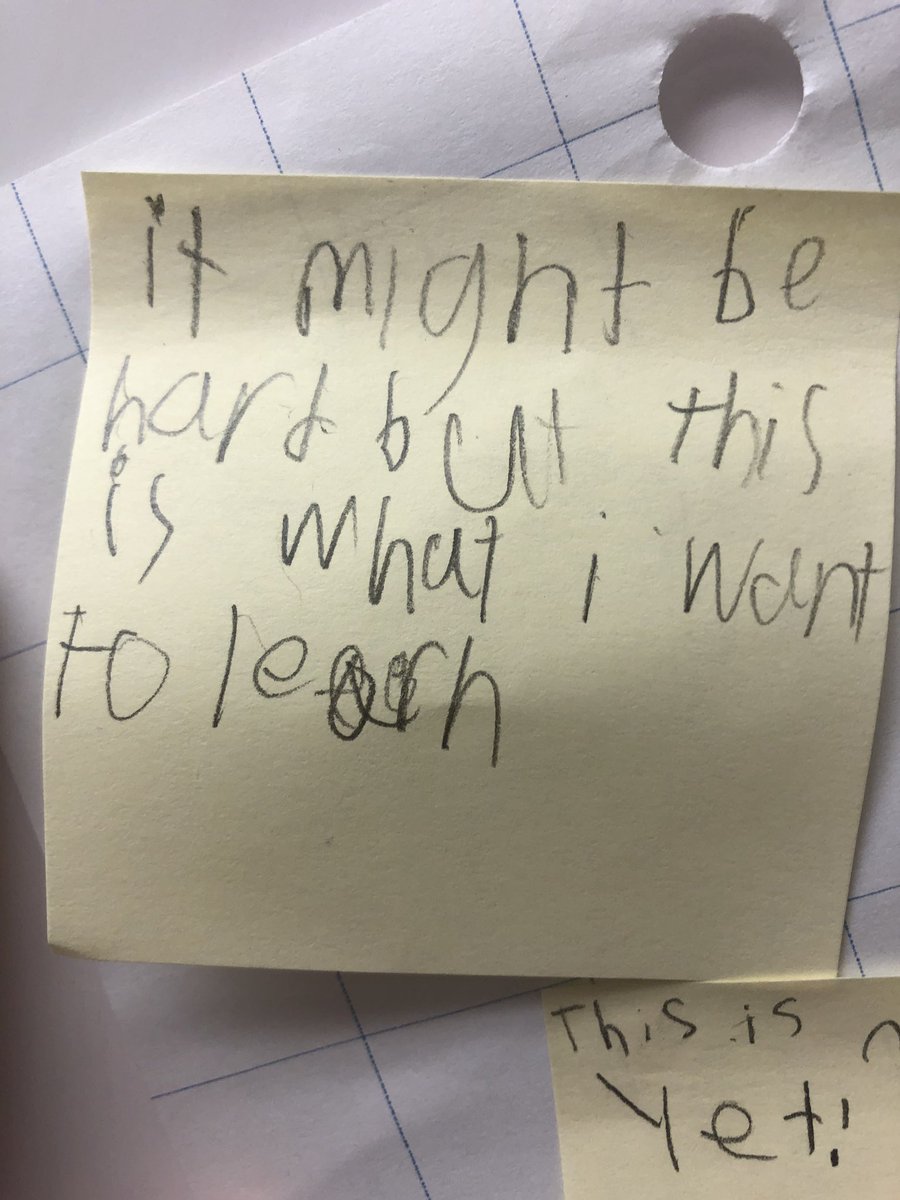 it might be
hard but this
is what i want
to learn
This is
Yet!